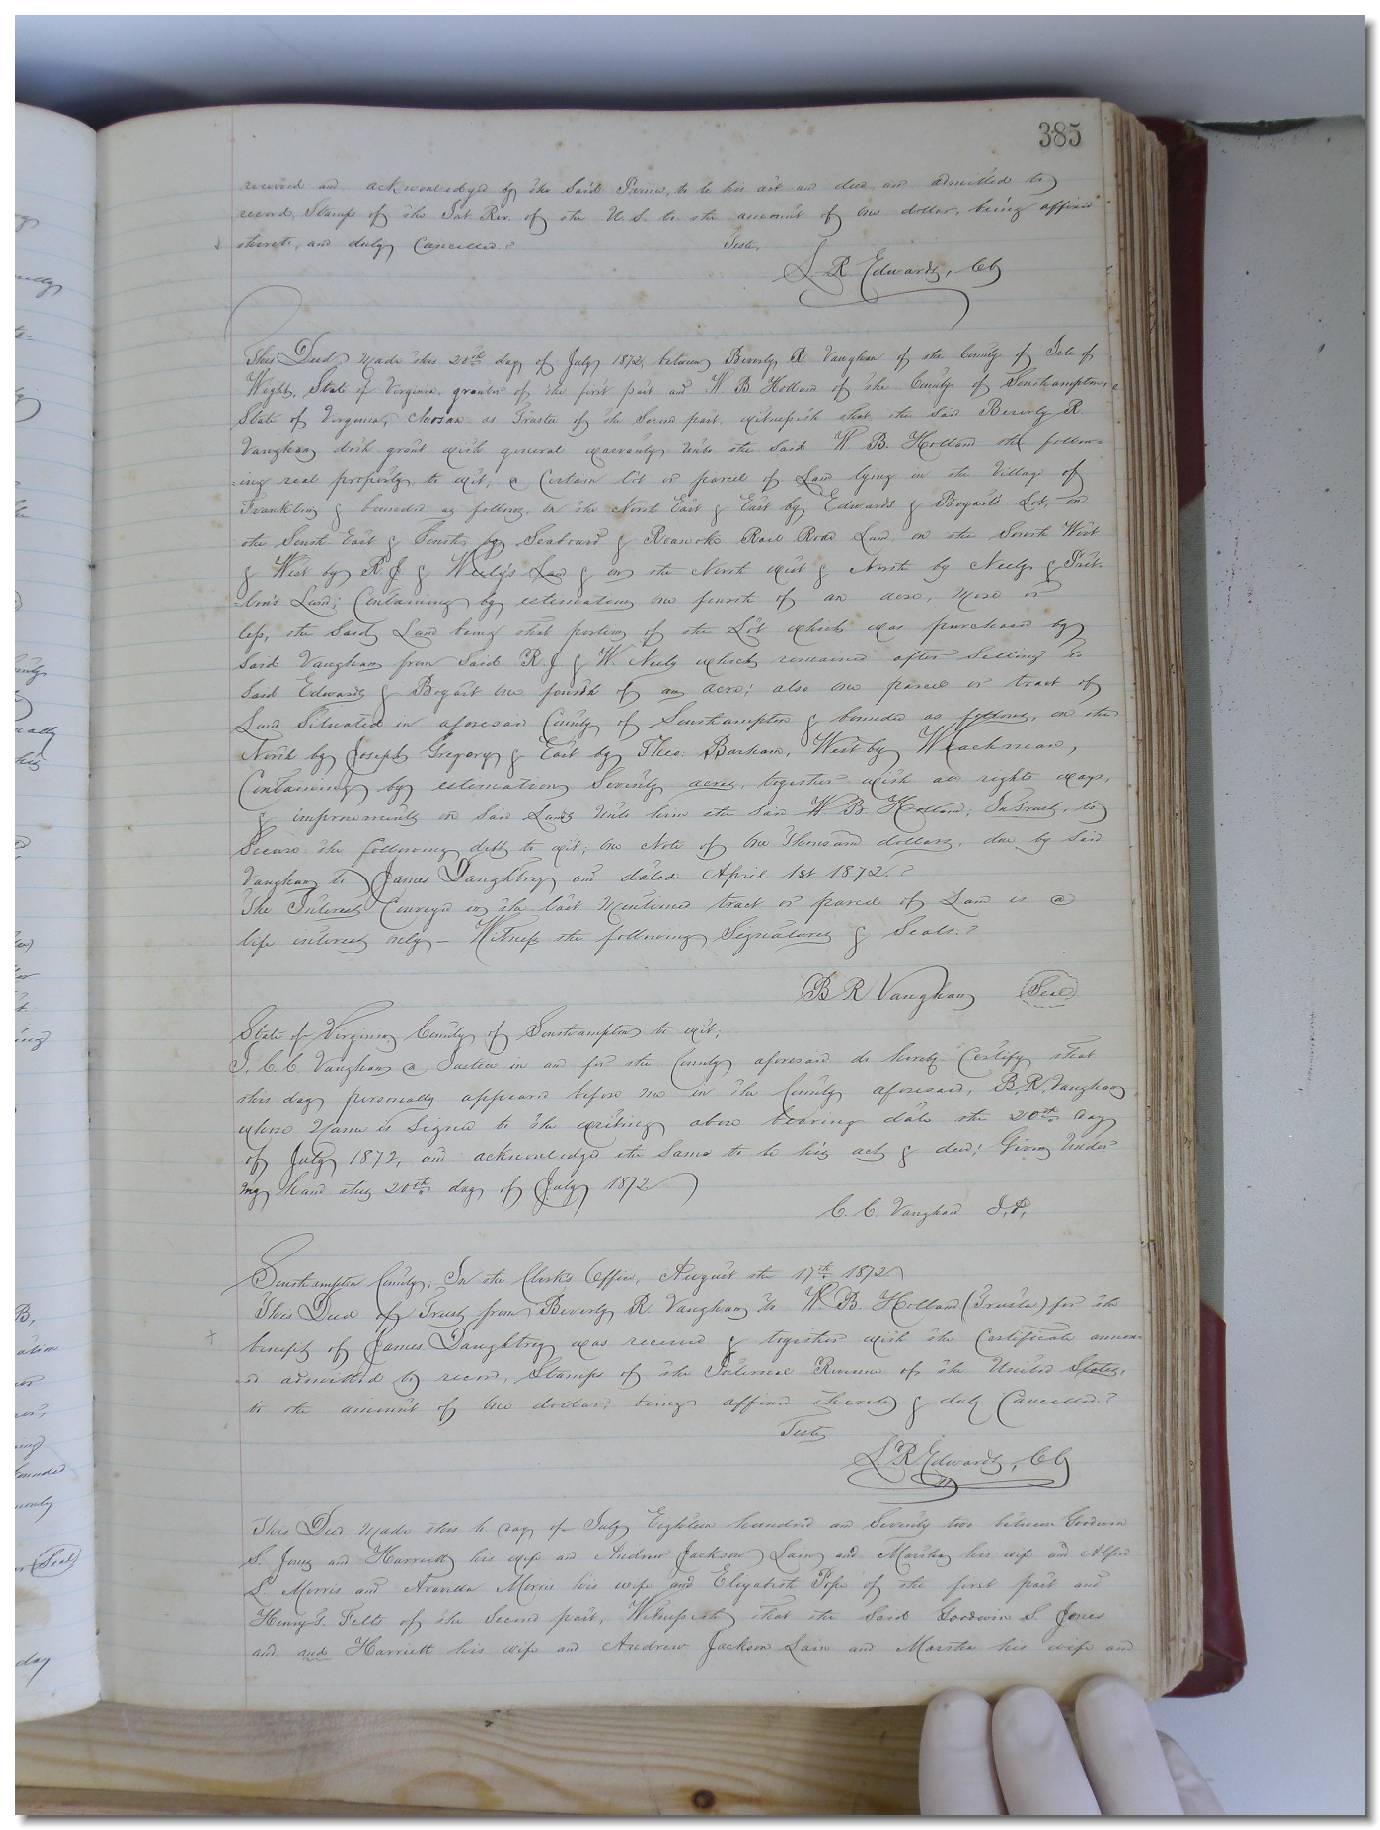 385
received and acknowledged by the Said to be his act and deed, and admitted to
record, Stamp of the Int. Rev. of the U. S. to the amount of one dollar, being affixed
thereto, and duly Cancelled.
Teste,
L. R. Edwards, Clk
This Deed Made this 20th day of July 1872, between Beverly R. Vaughan of the County of Isle of
Wight, State of Virginia, grantor of the first part and W B Holland of the County of Southampton &
State of Virginia, chosen as Trustee of the Second part, witnesseth that the said Beverly R.
Vaughan doth grant with general warranty Unto the said W B. Holland the follow=
=ing real property to wit; a Certain lot or parcel of Land lying in the Village of
Franklin & bounded as follows, on the North East & East by Edwards & Bogart's Lot, on
the South East & South by Seaboard & Roanoke Rail Road Land, on the South West
& West by R. J & W Neely's Land & on the North west & North by Neely &
Land; Containing by estimation one fourth of an acre, More or
less, the Said Land being that portion of the Lot which was purchased by
Said Vaughan from Said R. J & W. Neely which remained after Selling to
Said Edwards & Bogart one fourth of an acre; also one parcel or tract of
Land Situated in aforesaid County of Southampton & bounded as follows, on the
North by Joseph Gregory & East by Theo. Barham, West by
Containing by estimation Seventy acres, together with all rights ways,
& improvements on said Lands Unto him the Said W. B. Holland, In trust, to
Secure the following debt to wit; One Note of One Thousand dollars, due by Said
Vaughan to James Daughtrey and dated April 1st 1872.
The Interest Conveyed in the last Mentioned tract or parcel of Land is a
life interest only — Witness the following Signatures & Seals.
B R Vaughan Seal
State of Virginia County of Southampton to wit;
I, C. C. Vaughan a Justice in and for the County aforesaid do hereby Certify that
this day personally appeared before me in the County aforesaid, B. R. Vaughan
whose Name is Signed to the writing above bearing date the 20th day
of July 1872, and acknowledged the same to be his act & deed; Given Under
my hand this 20th day of July 1872
C. C. Vaughan J. P.
Southampton County; In the Clerk's Office, August the 17th 1872
This Deed of Trust from Beverly R. Vaughan to W. B. Holland (Trustee) for the
benefit of James Daughtrey was received & together with the Certificate annex
=ed admitted to record, Stamps of the Internal Revenue of the United States,
to the amount of one dollar, being affixed thereto & duly Cancelled.
Teste
L R Edwards, Clk
This Deed Made this day of July Eighteen hundred and Seventy two between Goodwin
S. Jones and Harriett his wife and Andrew Jackson Lain and Marsha his wife and Alfred
L. Morris and Morris his wife and Elizabeth Pope of the first part and
Henry T. Felts of the Second part, Witnesseth that the Said Goodwin S. Jones
and and Harriett his wife and Andrew Jackson Lain and Marsha his wife and